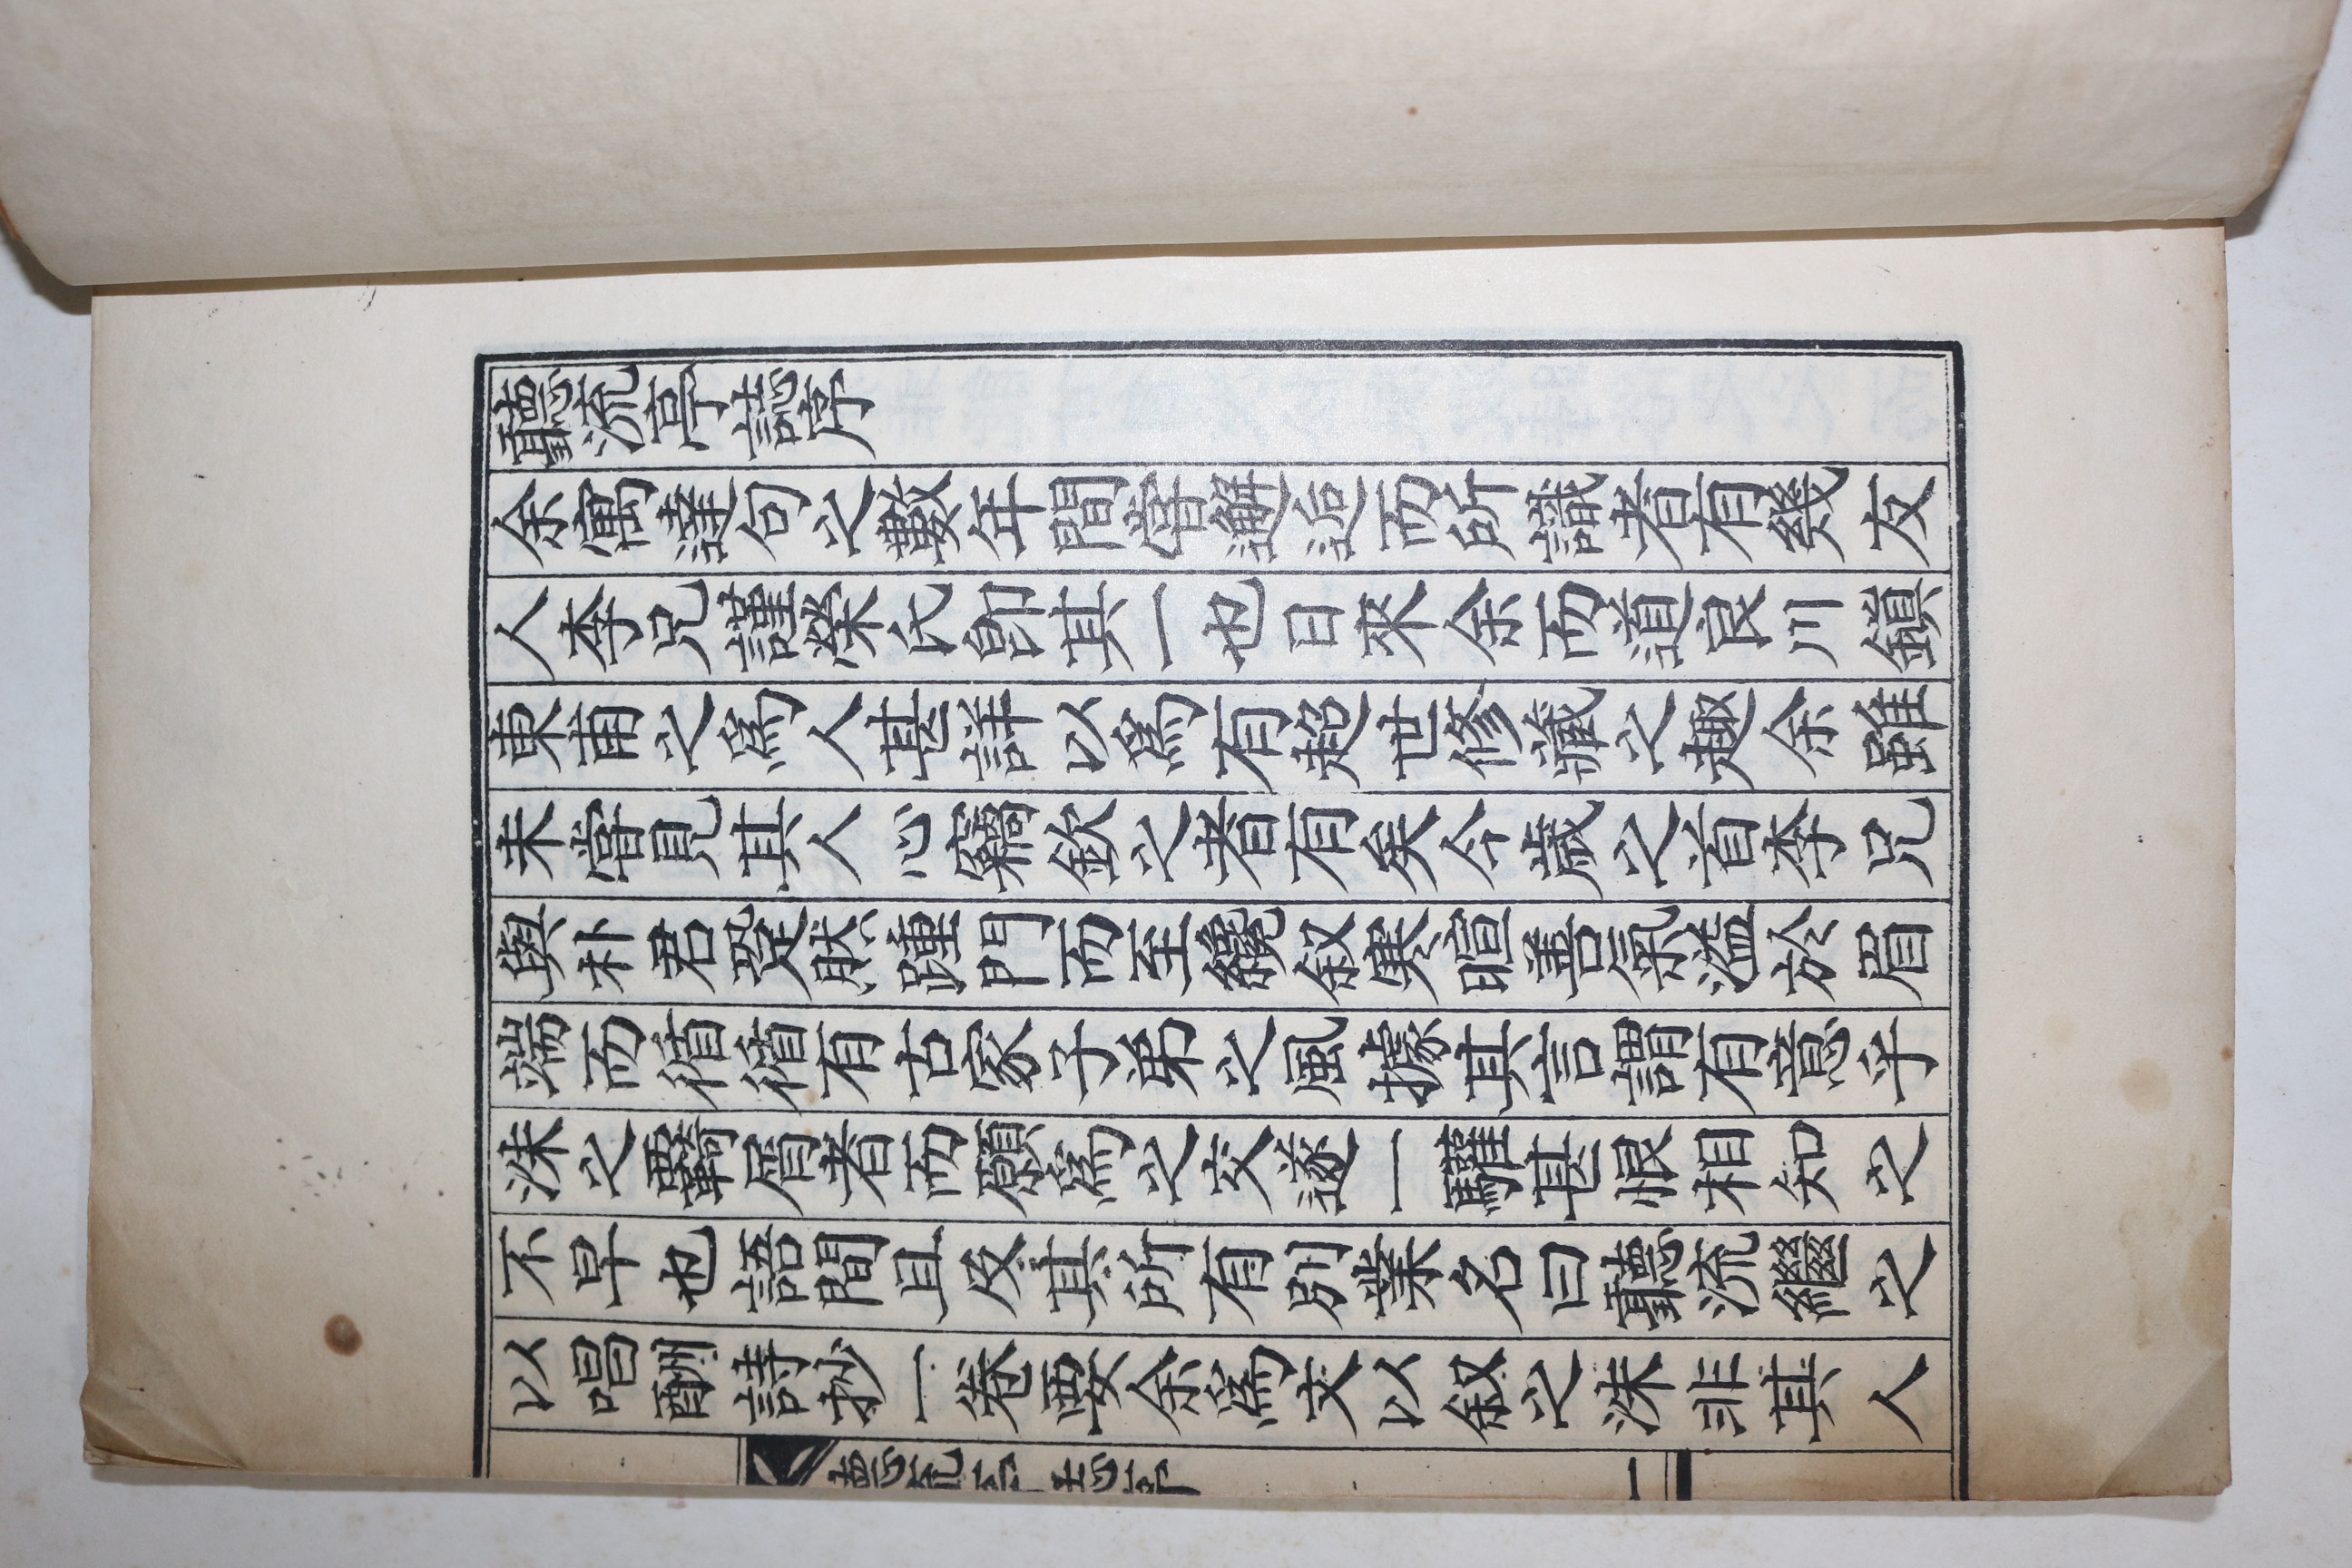 聽流亭誌序
余寓達句之數年間嘗邂逅而所識者有幾友
人李兄謹榮氏卽其一也日來余而道良川鎭
東甫之爲人甚詳以爲有超世修藏之趣余雖
未嘗見其人心竊欽之者有矣今歲之首李兄
與朴君跫然踵門而至纔叙寒暄善氣溢於眉
端而循循有古家子弟之風據其言謂有意乎
洙之羇屑者而願爲之交遂一驩甚恨相知之
不早也語間且及其所有別業名曰聽流繼之
以唱酬詩抄一卷要余爲文以叙之洙非其人
聽流亭誌序
一